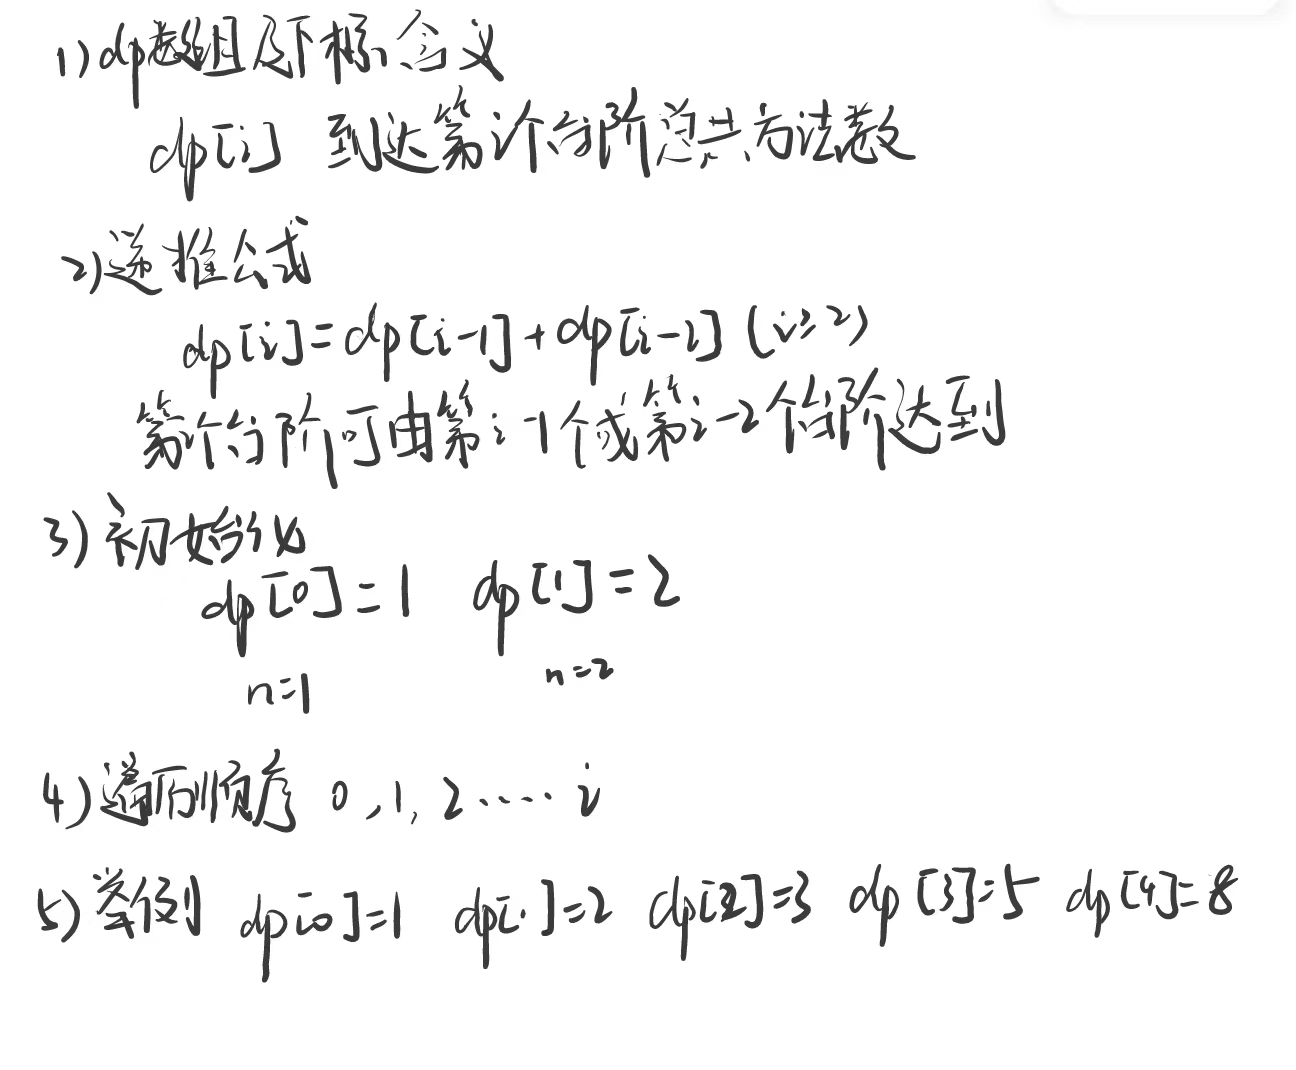 1) dp数组及下标含义
dp[i] 到达第i个台阶总共方法数
2) 递推公式
dp[i]=dp[i-1]+dp[i-2] (i≥2)
第i个台阶可由第i-1个或第i-2个台阶达到
3) 初始化
dp[0]=1 dp[1]=2
n=1 n=2
4) 遍历顺序 0,1,2.....i
5) 举例 dp[0]=1 dp[1]=2 dp[2]=3 dp[3]=5 dp[4]=8